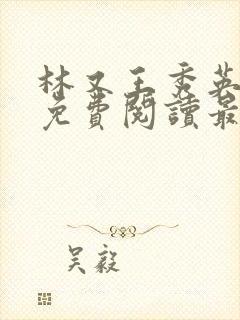 林又王秀英
免費閱讀最
吴毅